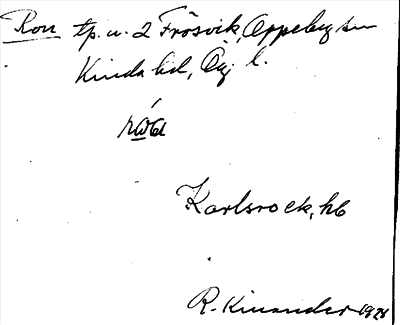 Ron tp. u. 2 Frösvik, Oppeby sn
Kinda hd, Ög. l.
råa
Karlsrock, hb
R. Kinander 1928